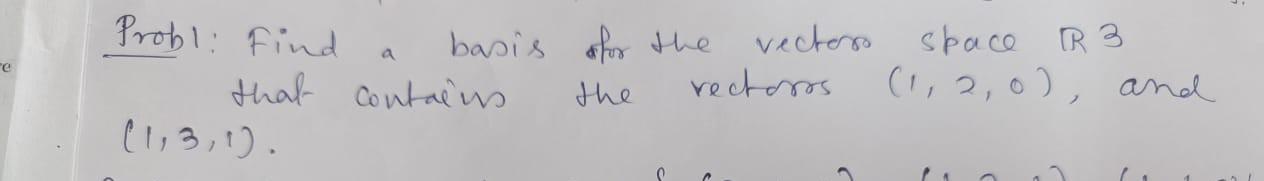 Prob1: Find a basis for the vector space ℝ3
that contains the vectors (1, 2, 0), and
(1, 3, 1).